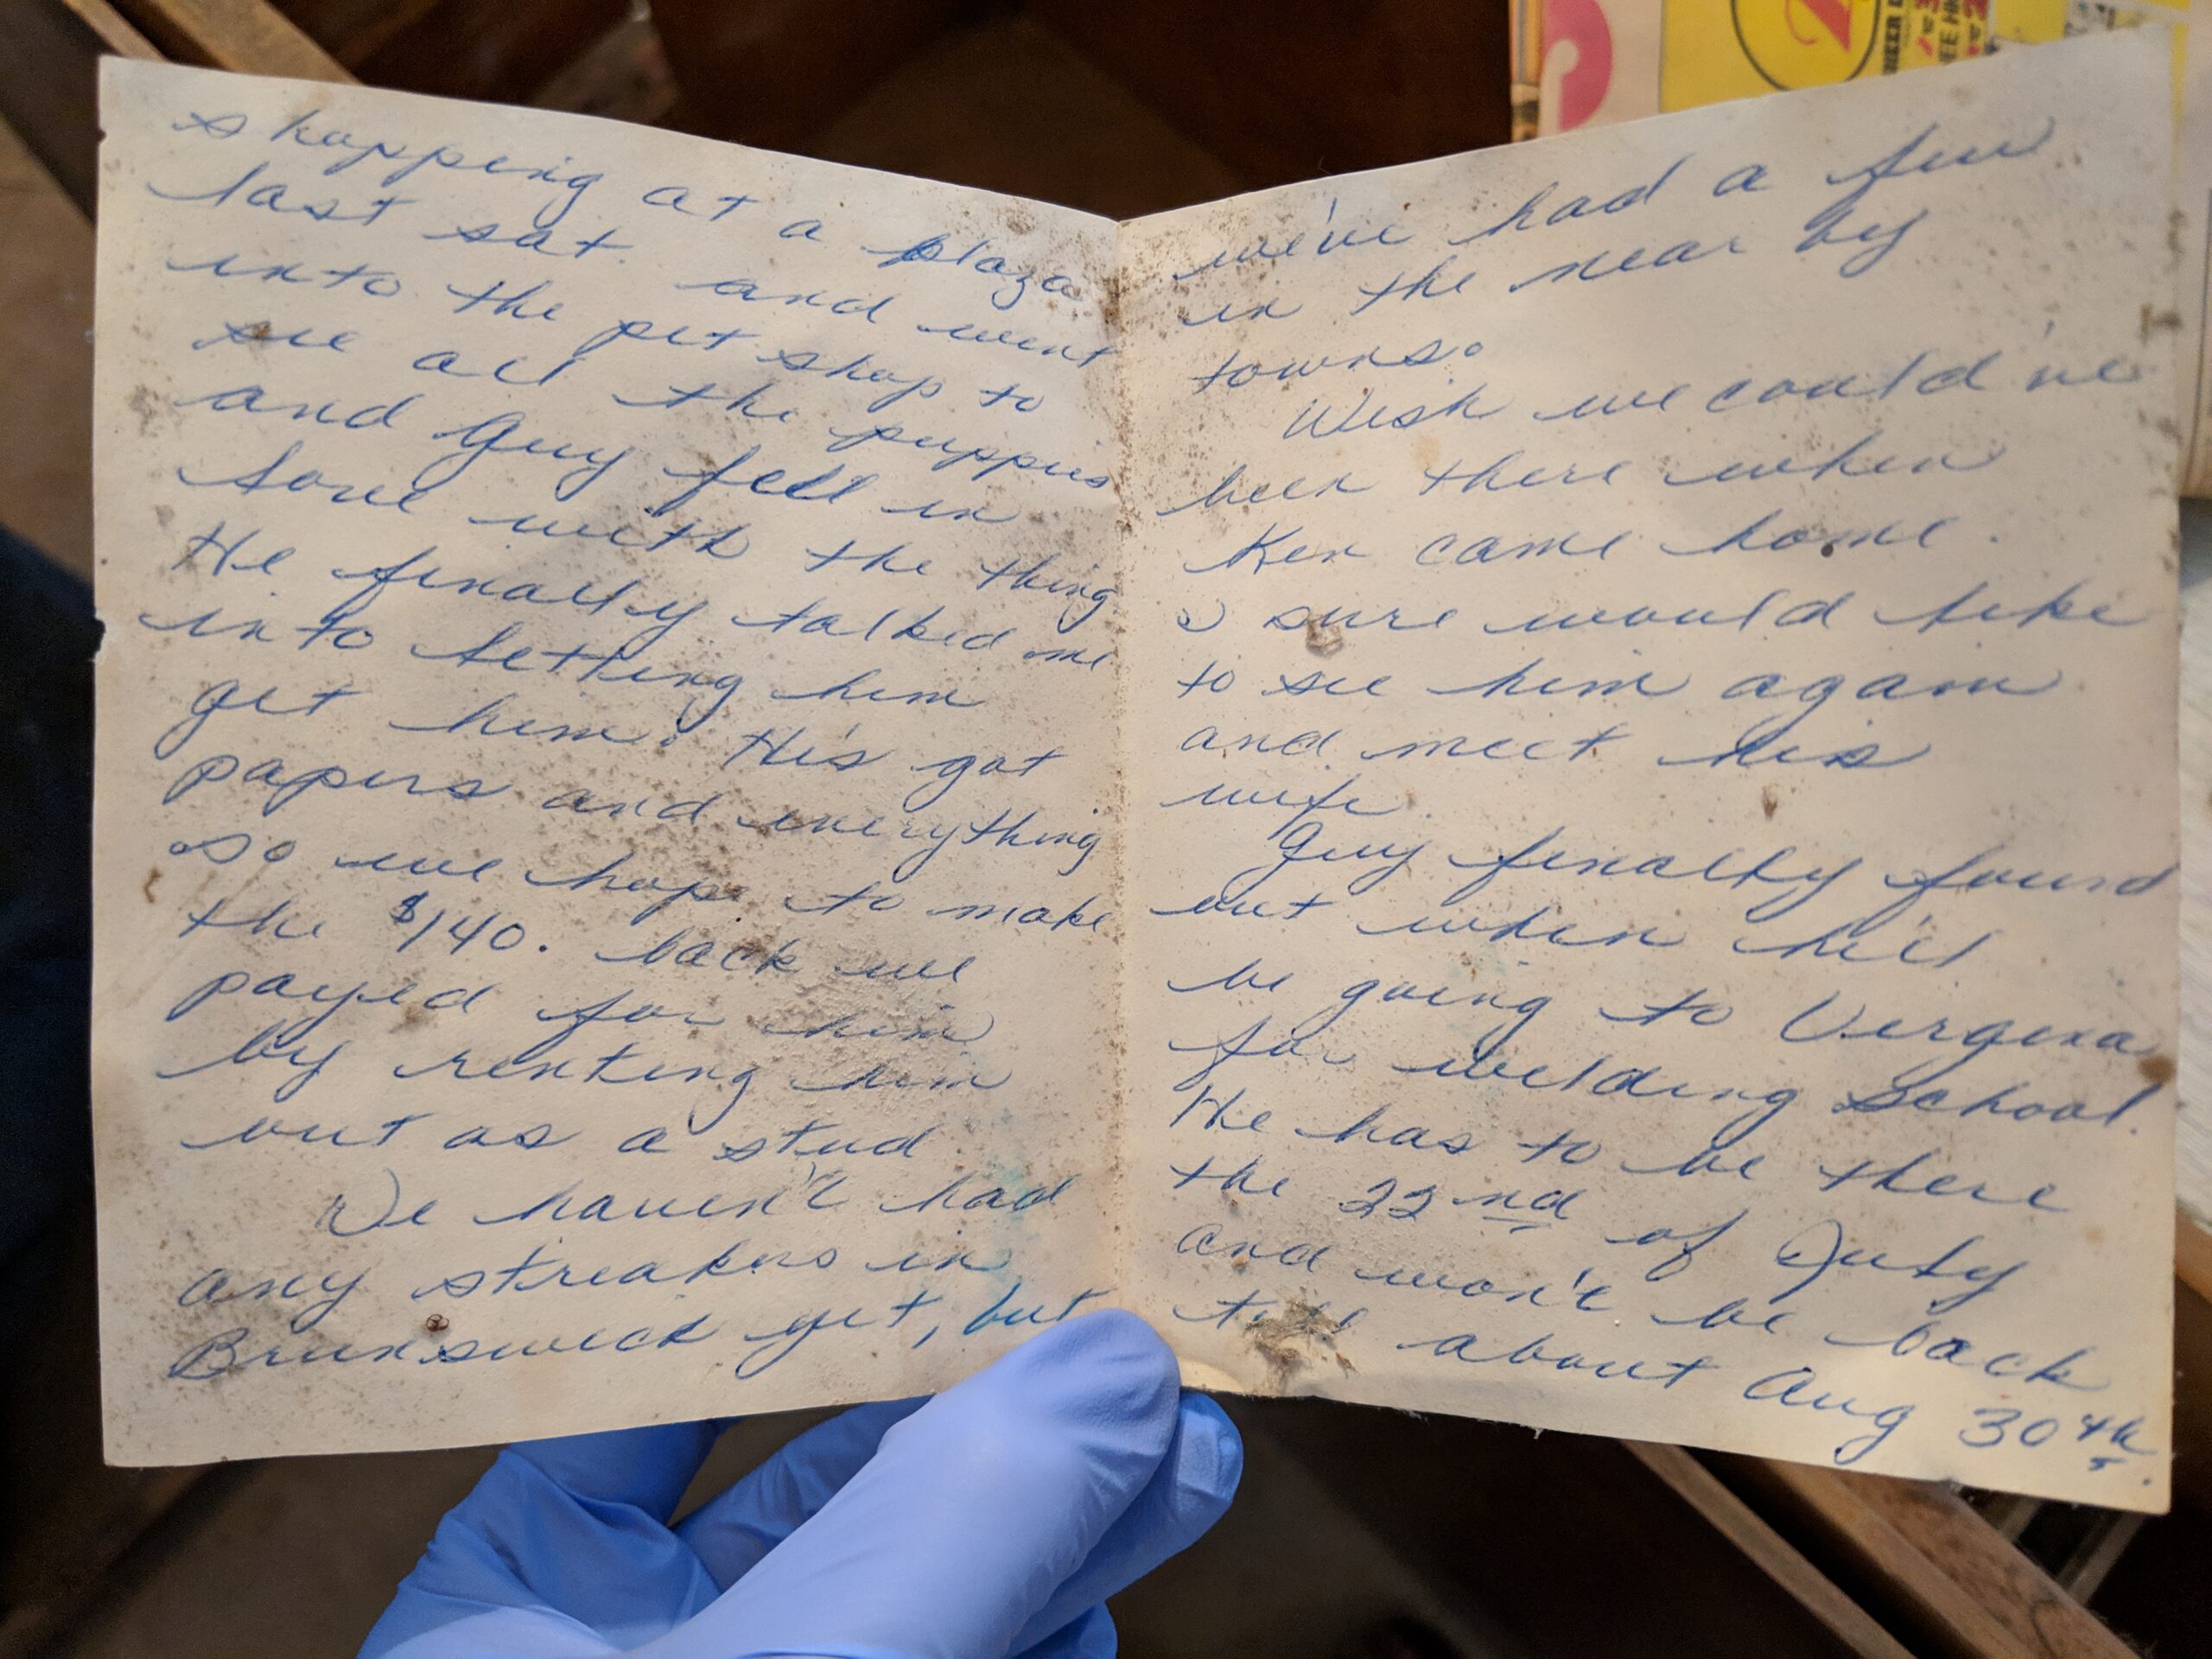 shopping at a plaza
last sat. and went
into the pet shop to
see all the puppies
and Guy fell in
love with the thing
He finally talked me
into letting him
get him. He's got
papers and everything
so we hope to make
the $140. back we
payed for him
by renting him
out as a stud
We haven't had
any streakers in
Brunswick yet, but
we've had a few
in the near by
towns.
Wish we could've
been there when
Ken came home.
I sure would like
to see him again
and meet his
wife.
Guy finally found
out when he'll
be going to Virgina
for welding school.
He has to be there
the 22nd of July
and won't be back
till about Aug 30th.